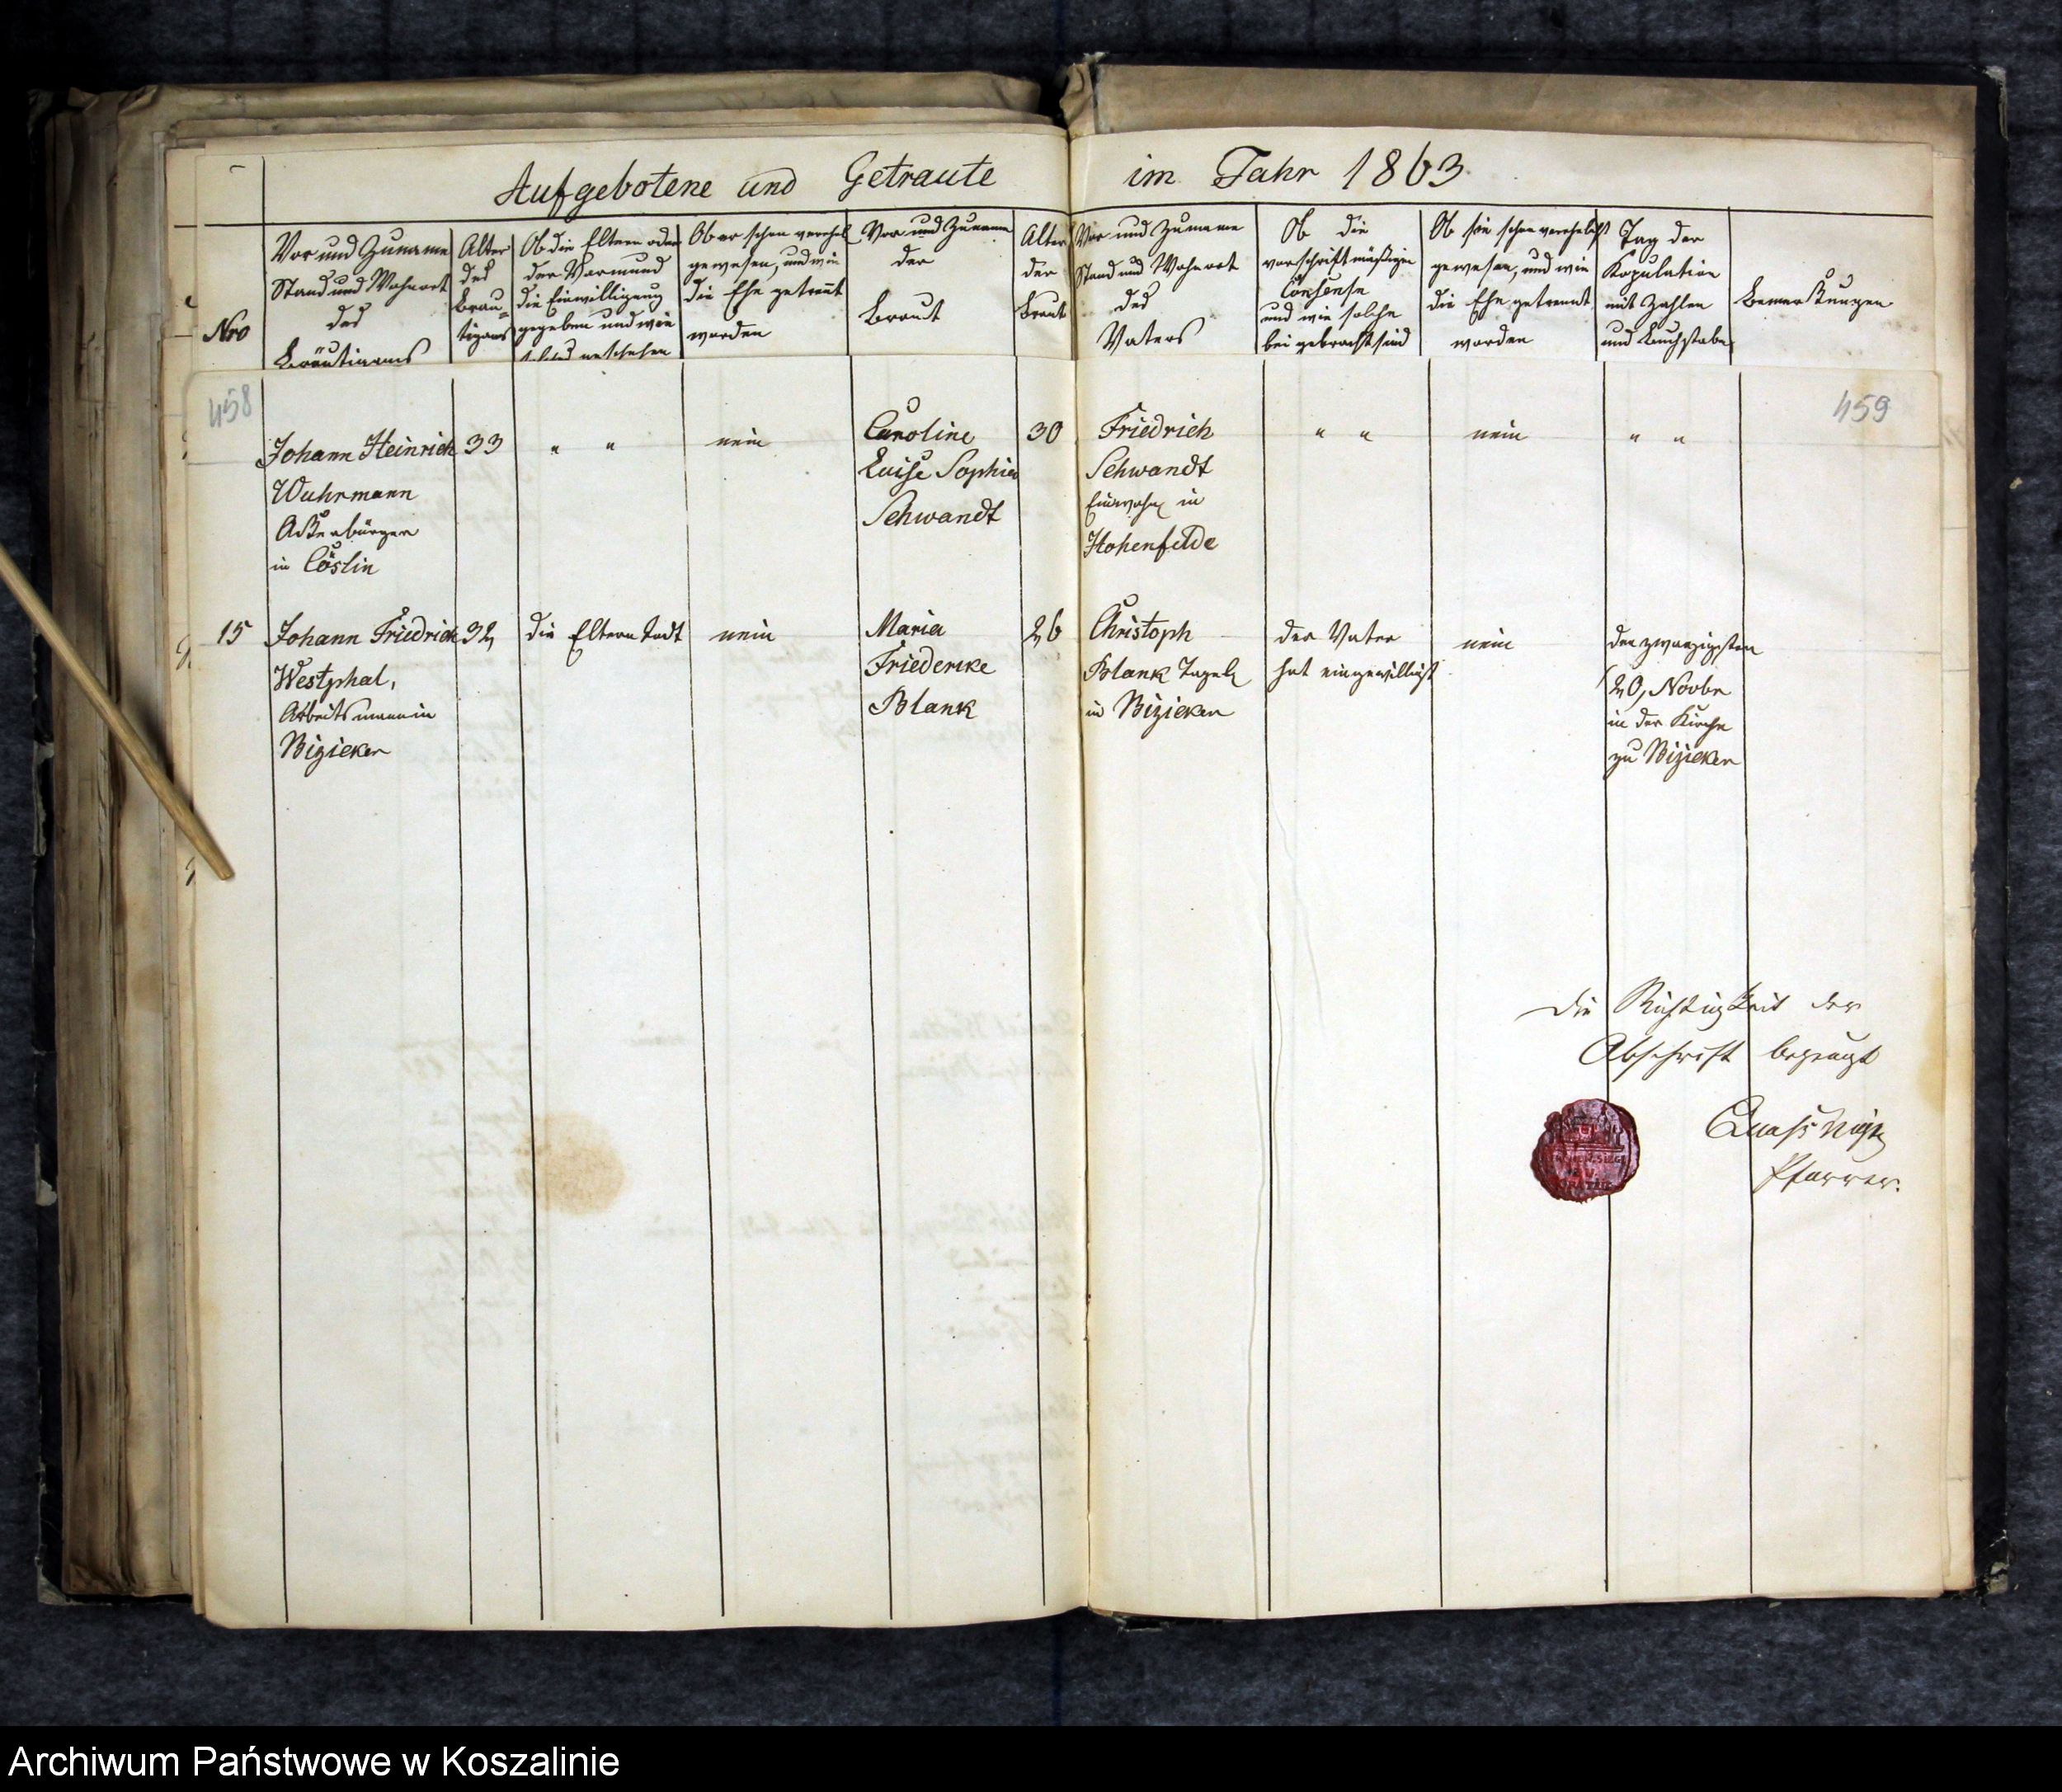 Aufgebotene und Getraute im Jahr 1863.
Nro
Vor und Zuname
Stand und Wohnort
des
Bräutigams
Alter
des
Bräu-
tigams
Ob die Eltern oder
der Vormund
die Einwilligung
gegeben und wie
solches geschehen
Ob er schon verehel
gewesen, und wie
die Ehe getrennt
worden
Vor und Zuname
der
Braut
Alter
der
Braut
Vor und Zuname
Stand und Wohnort
des
Vaters
Ob die
vorschriftmäßigen
Consense
und wie solche
bei gebracht sind
Ob sie schon verehelicht
gewesen, und wie
die Ehe getrennt
worden
Tag der
Kopulation
mit Zahlen
und Buchstaben
Bemerkungen
458
459
Johann Heinrich
Wuhrmann
Ackerbürger
in Cöslin
33
" "
nein
Caroline
Luise Sophie
Schwandt
30
Friedrich
Schwandt
Einwohn in
Hohenfelde
" "
nein
" "
15
Johann Friedrich
Westphal,
Arbeitsmann in
Bizicker
32
die Eltern todt
nein
Maria
Friedericke
Blank
26
Christoph
Blank Tagel
in Bizicker
der Vater
hat eingewilligt
nein
den zwanzigsten
20, Novbr
in der Kirche
zu Bizicker
Die Richtigkeit der
Abschrift bezeugt
Pfarrer.
Archiwum Państwowe w Koszalinie